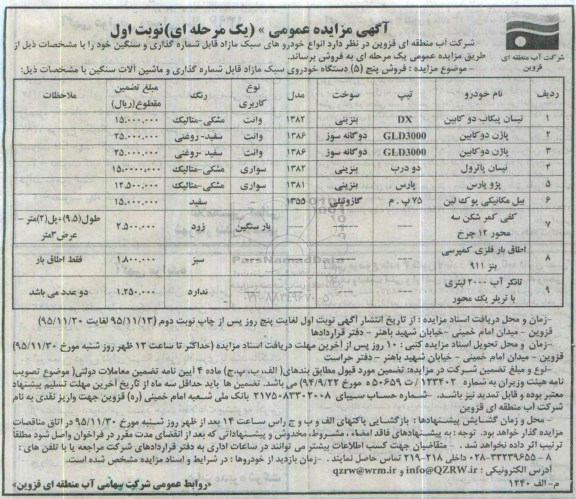 آگهی مزایده عمومی » (یک مرحله ای) نوبت اول
شرکت آب منطقه ای قزوین
شرکت آب منطقه ای قزوین در نظر دارد انواع خودرو های سبک مازاد قابل شماره گذاری و سنگین خود را با مشخصات ذیل از
طریق مزایده عمومی یک مرحله ای به فروش برساند.
- موضوع مزایده : فروش پنج (۵) دستگاه خودروی سبک مازاد قابل شماره گذاری و ماشین آلات سنگین با مشخصات ذیل:
ردیف نام خودرو تیپ سوخت مدل نوع کاربری رنگ مبلغ تضمین مقطوع(ریال) ملاحظات
۱ نیسان پیکاب دو کابین DX بنزینی ۱۳۸۲ وانت مشکی-متالیک ۱۵.۰۰۰.۰۰۰
۲ پاژن دو کابین GLD3000 دوگانه سوز ۱۳۸۶ وانت سفید-روغنی ۲۵.۰۰۰.۰۰۰
۳ پاژن دو کابین GLD3000 دوگانه سوز ۱۳۸۶ وانت سفید-روغنی ۲۵.۰۰۰.۰۰۰
۴ نیسان پاترول دو درب بنزینی ۱۳۸۲ سواری مشکی-متالیک ۱۵۰۰۰۰,۰۰۰
۵ پژو پارس پارس بنزینی ۱۳۸۱ سواری مشکی-متالیک ۱۲.۵۰۰.۰۰۰
۶ بیل مکانیکی پوک لین ۷۵ پ . م گازوئیلی ۱۳۵۵ سفید ۱۵.۰۰۰.۰۰۰
۷ کفی کمر شکن سه محور ۱۲ چرخ ----- ----- --- بار سنگین زرد ۲.۵۰۰.۰۰۰ طول(۹.۵)+پل(۲)متر – عرض ۳متر
۸ اطاق بار فلزی کمپرسی بنز ۹۱۱ ----- ----- --- --- سبز ۱.۸۰۰.۰۰۰ فقط اطاق بار
۹ تانکر آب ۲۰۰۰ لیتری با تریلر یک محور ----- ----- --- --- ندارد ۱.۲۵۰.۰۰۰ دو عدد می باشد
ParsNamadData
-زمان و محل دریافت اسناد مزایده : از تاریخ انتشار آگهی نوبت اول لغایت پنج روز پس از چاپ نوبت دوم (۹۵/۱۱/۱۳ لغایت ۹۵/۱۱/۲۰)
قزوین – میدان امام خمینی –خیابان شهید باهنر – دفتر قراردادها
- زمان و محل تحویل اسناد مزایده کتبی : ۱۰ روز پس از آخرین مهلت دریافت اسناد مزایده (حداکثر تا ساعت ۱۳ ظهر روز شنبه مورخ ۹۵/۱۱/۳۰)
قزوین – میدان امام خمینی – خیابان شهید باهنر – دفتر حراست
-نوع و مبلغ تضمین شرکت در مزایده: تضمین مورد قبول مطابق بندهای( الف، ب، پ،ج) ماده ۴ آیین نامه تضمین معاملات دولتی( موضوع تصویب
نامه هیئت وزیران به شماره ۱۲۳۴۰۲/ت ۵۰۶۵۹ه مورخ ۹۴/۹/۲۲) می باشد. تضمین ها باید حداقل سه ماه از تاریخ آخرین مهلت تسلیم پیشنهاد
معتبر بوده و قابل تمدید نیز باشد. -شماره حساب سیبای ۲۱۷۵۰۸۳۳۰۲۰۰۸ بانک ملی شعبه امام خمینی (ره) قزوین جهت واریز نقدی به نام
شرکت آب منطقه ای قزوین
- محل و زمان گشایش پیشنهادها : بازگشایی پاکتهای الف و ب و ج راس ساعت ۱۴ بعد از ظهر روز شنبه مورخ ۹۵/۱۱/۳۰ در اتاق مناقصات
مزایده گذار خواهد بود. توجه : به پیشنهادهای فاقد امضاء ، مشروط، مخدوش و پیشنهاداتی که بعد از انقضای مدت مقرر در فراخوان واصل شود مطلقا
ترتیب اثر داده نخواهد شد. - متقاضیان جهت کسب اطلاعات بیشتر می توانند در ساعات اداری به دفتر قراردادهای شرکت مراجعه یا با تلفن های :
۸ – ۰۲۸-۳۳۳۳۹۶۵۵ داخلی ۲۱۸-۲۱۹ تماس حاصل نمایند . -زمان بازدید از خودروها : در شرایط و اسناد مزایده مشخص شده است.
آدرس الکترونیکی : info@QZRW.ir و qzrw@wrm.ir
«روابط عمومی شرکت سهامی آب منطقه ای قزوین»
م- الف ۱۲۴۰